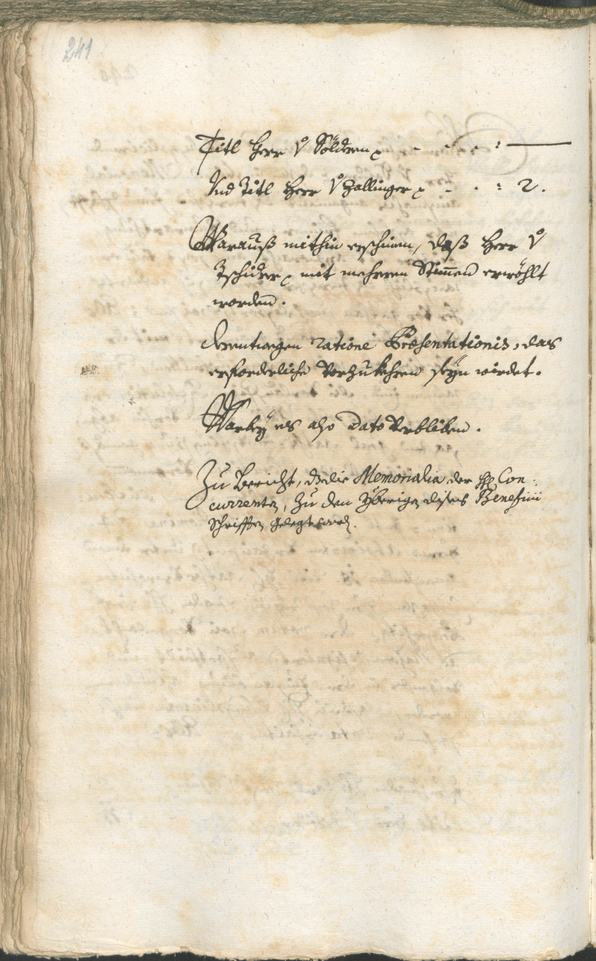 241
Titl Herr V Söldern - - - : —
Und Titl Herr V Zallinger - - : 2.
Warauß mithin erschinen, daß Herr V
Tschiderer mit mehreren Stimmen erwöhlt
worden.
derentwegen ratione Præsentationis, das
erforderliche vorzukhern seyn würdet.
Warbey es also dato verbliben.
Zu Bericht, daß die Memorialia der HH Con-
currenten, zu den yberigen dises Beneficii
Schrifften gelegt word.